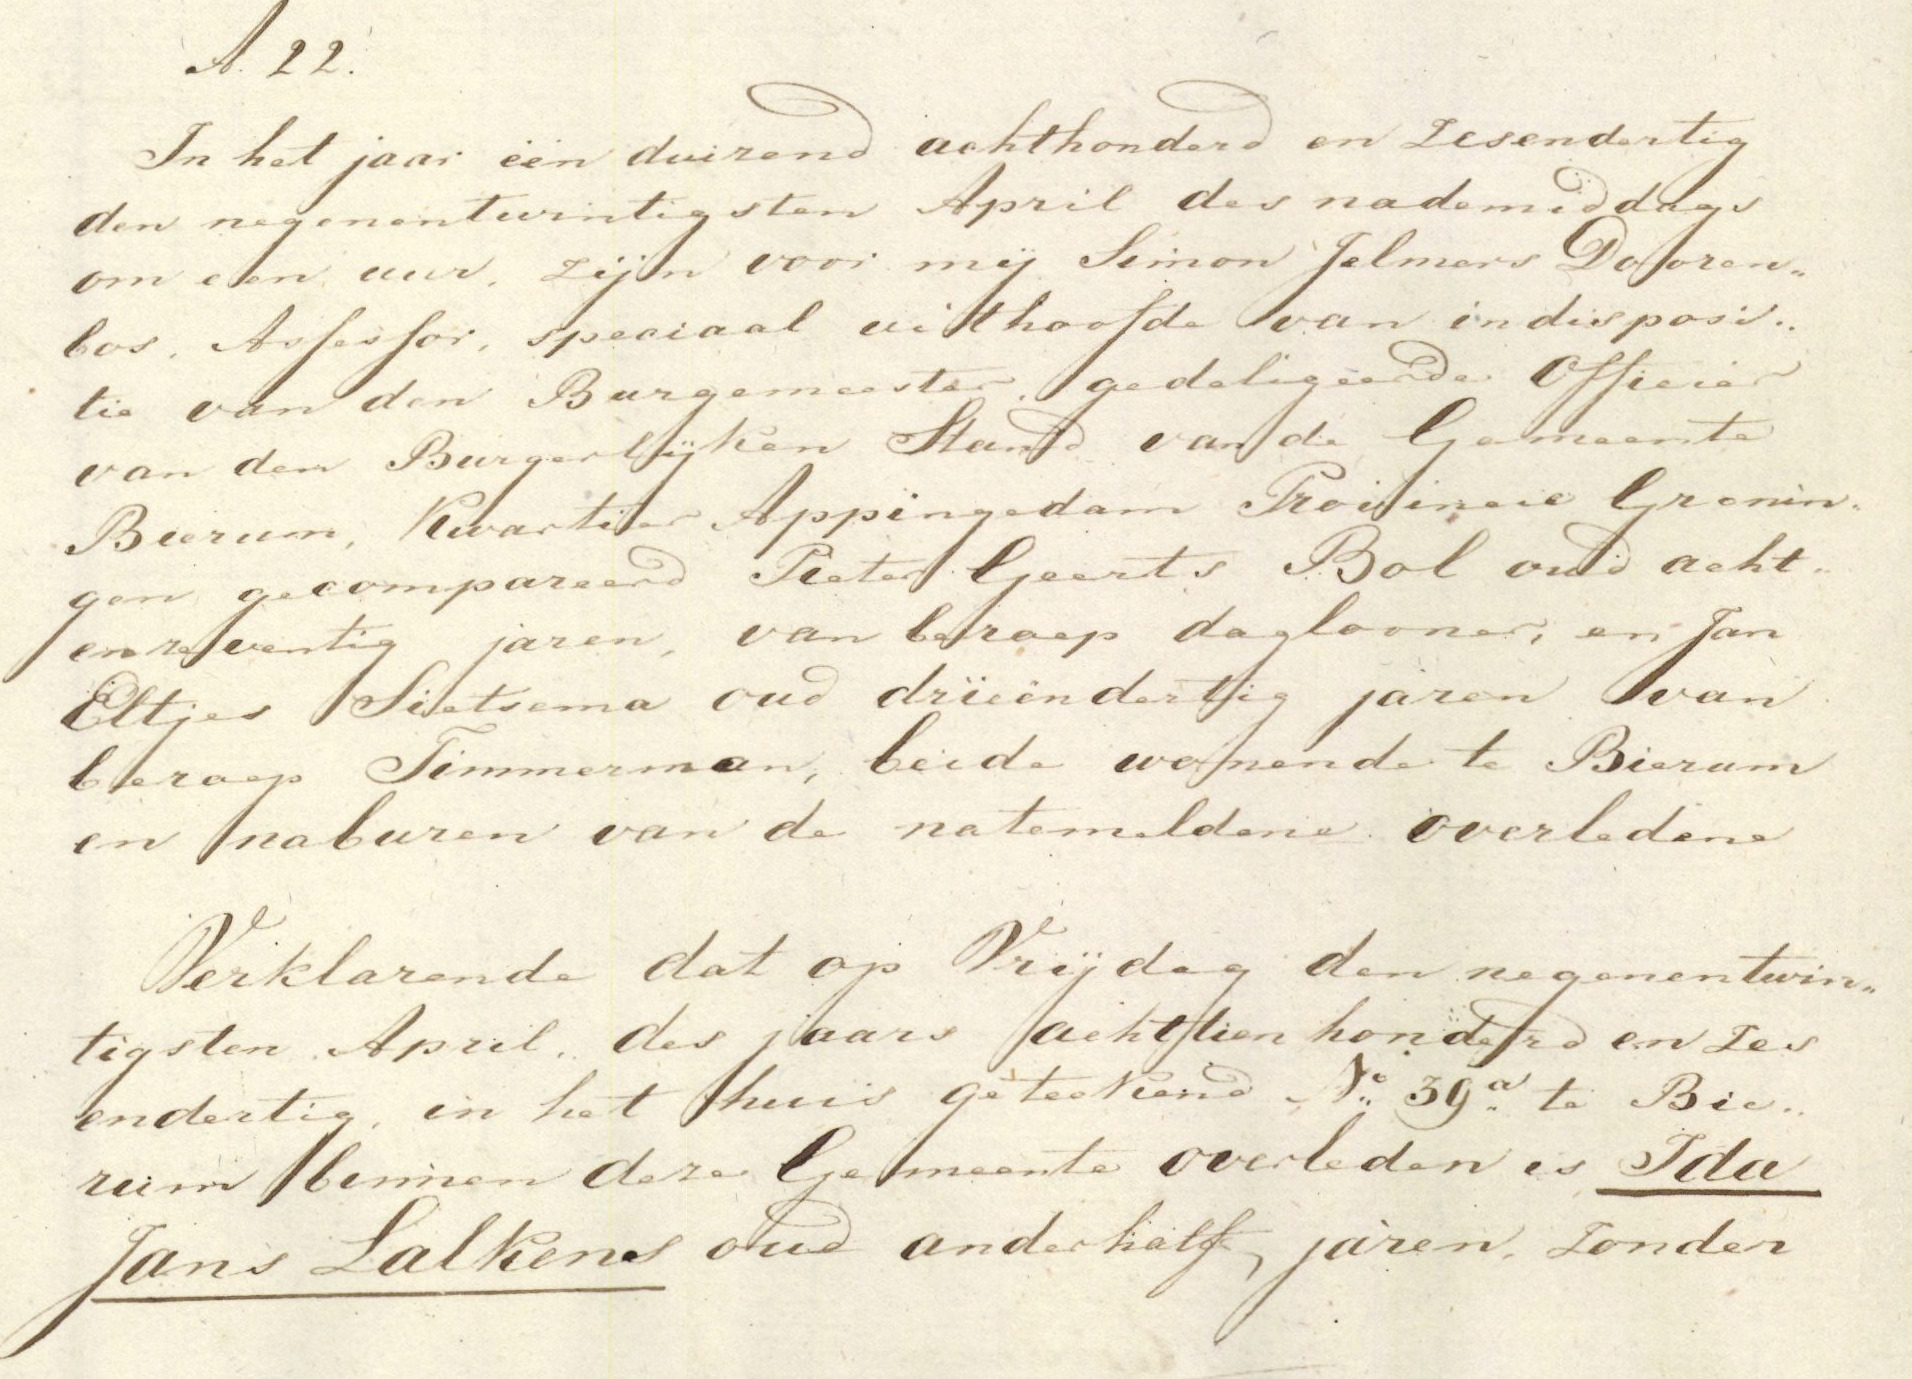 A. 22.
In het jaar één duizend achthonderd en zesendertig
den negenentwintigsten April des nademiddags
om een uur, zijn voor mij Simon Jelmers Dooren„
bos, Assessor, speciaal uit hoofde van indisposi„
tie van den Burgemeester, gedeligeerde Officier
van den Burgerlijken Stand van de Gemeente
Bierum, Kwartier Appingedam Provincie Gronin„
gen gecompareerd Pieter Geerts Bol oud acht„
enzeventig jaren, van beroep daglooner, en Jan
Eltjes Sietsema oud drieëndertig jaren van
beroep Timmerman, beide wonende te Bierum
en naburen van de natemeldene overledene
Verklarende dat op Vrijdag den negenentwin„
tigsten April, des jaars achttien honderd en zes
endertig, in het huis geteekend No. 39a te Bie„
rum binnen deze Gemeente overleden is Ida
Jans Lalkens oud anderhalf jaren, zonder